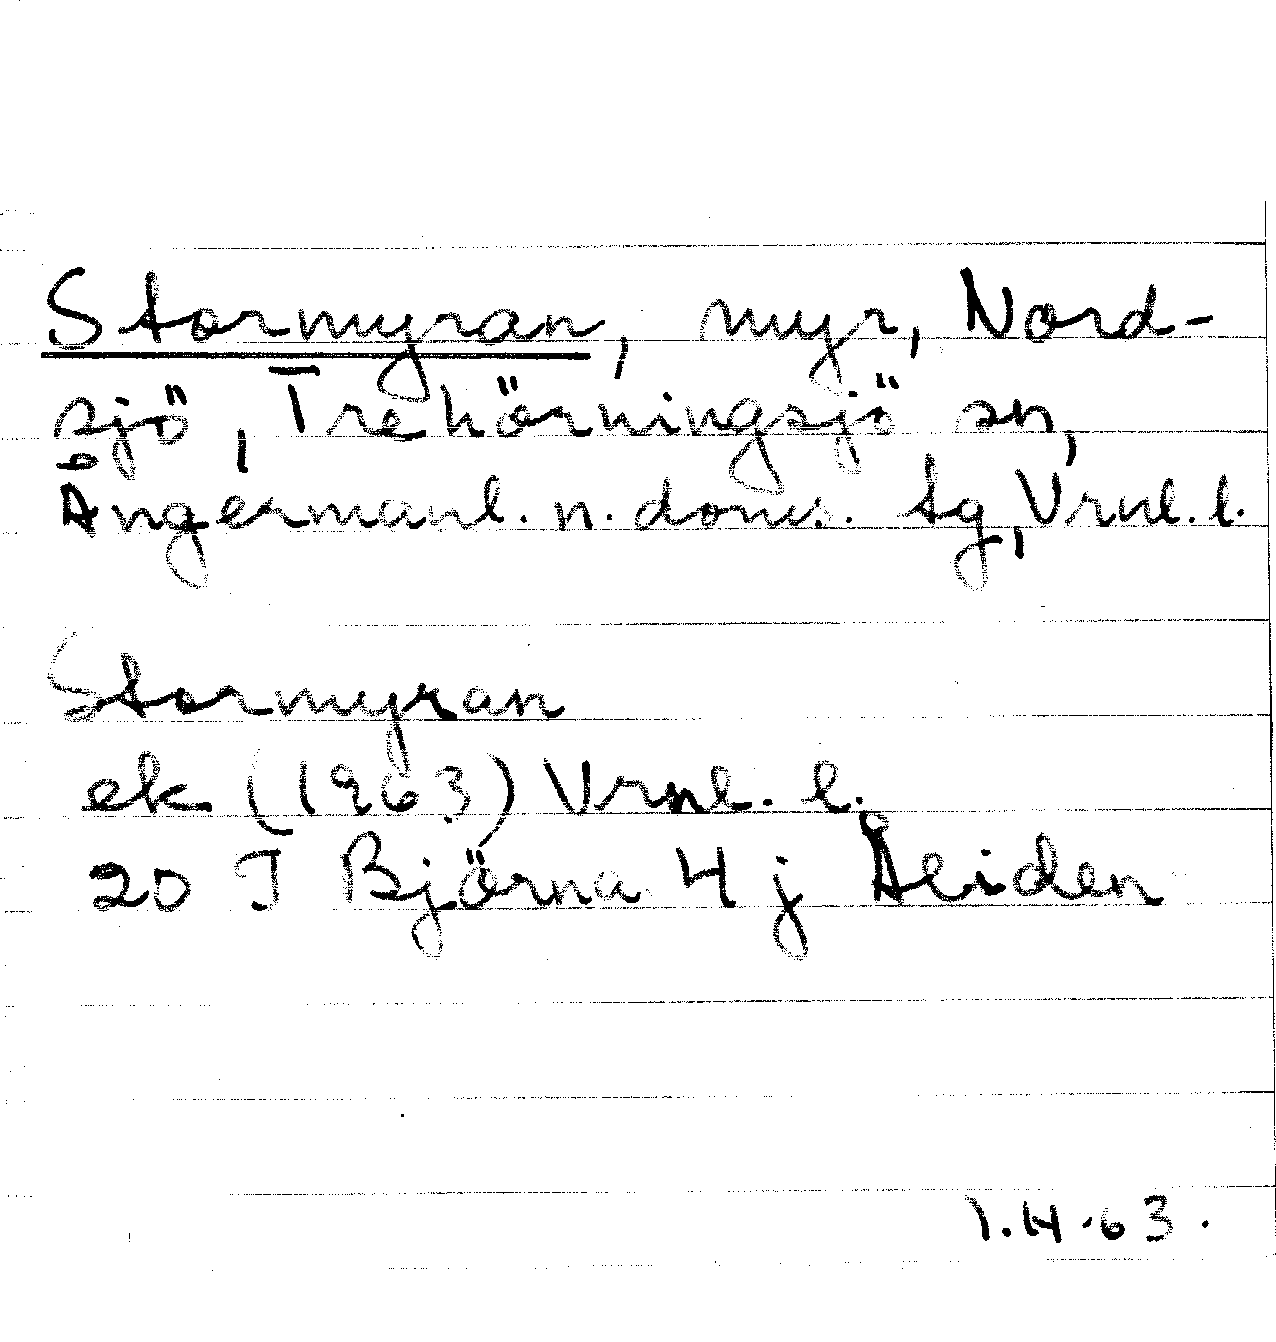 Stormyran, myr, Nord-
sjö, Trehörningsjö sn,
Ångermanl. n. doms. tg, Vrnl. l.
Stormyran
ek (1963) Vrnl. l.
20 J Björna 4 j Åliden
1.4.63.